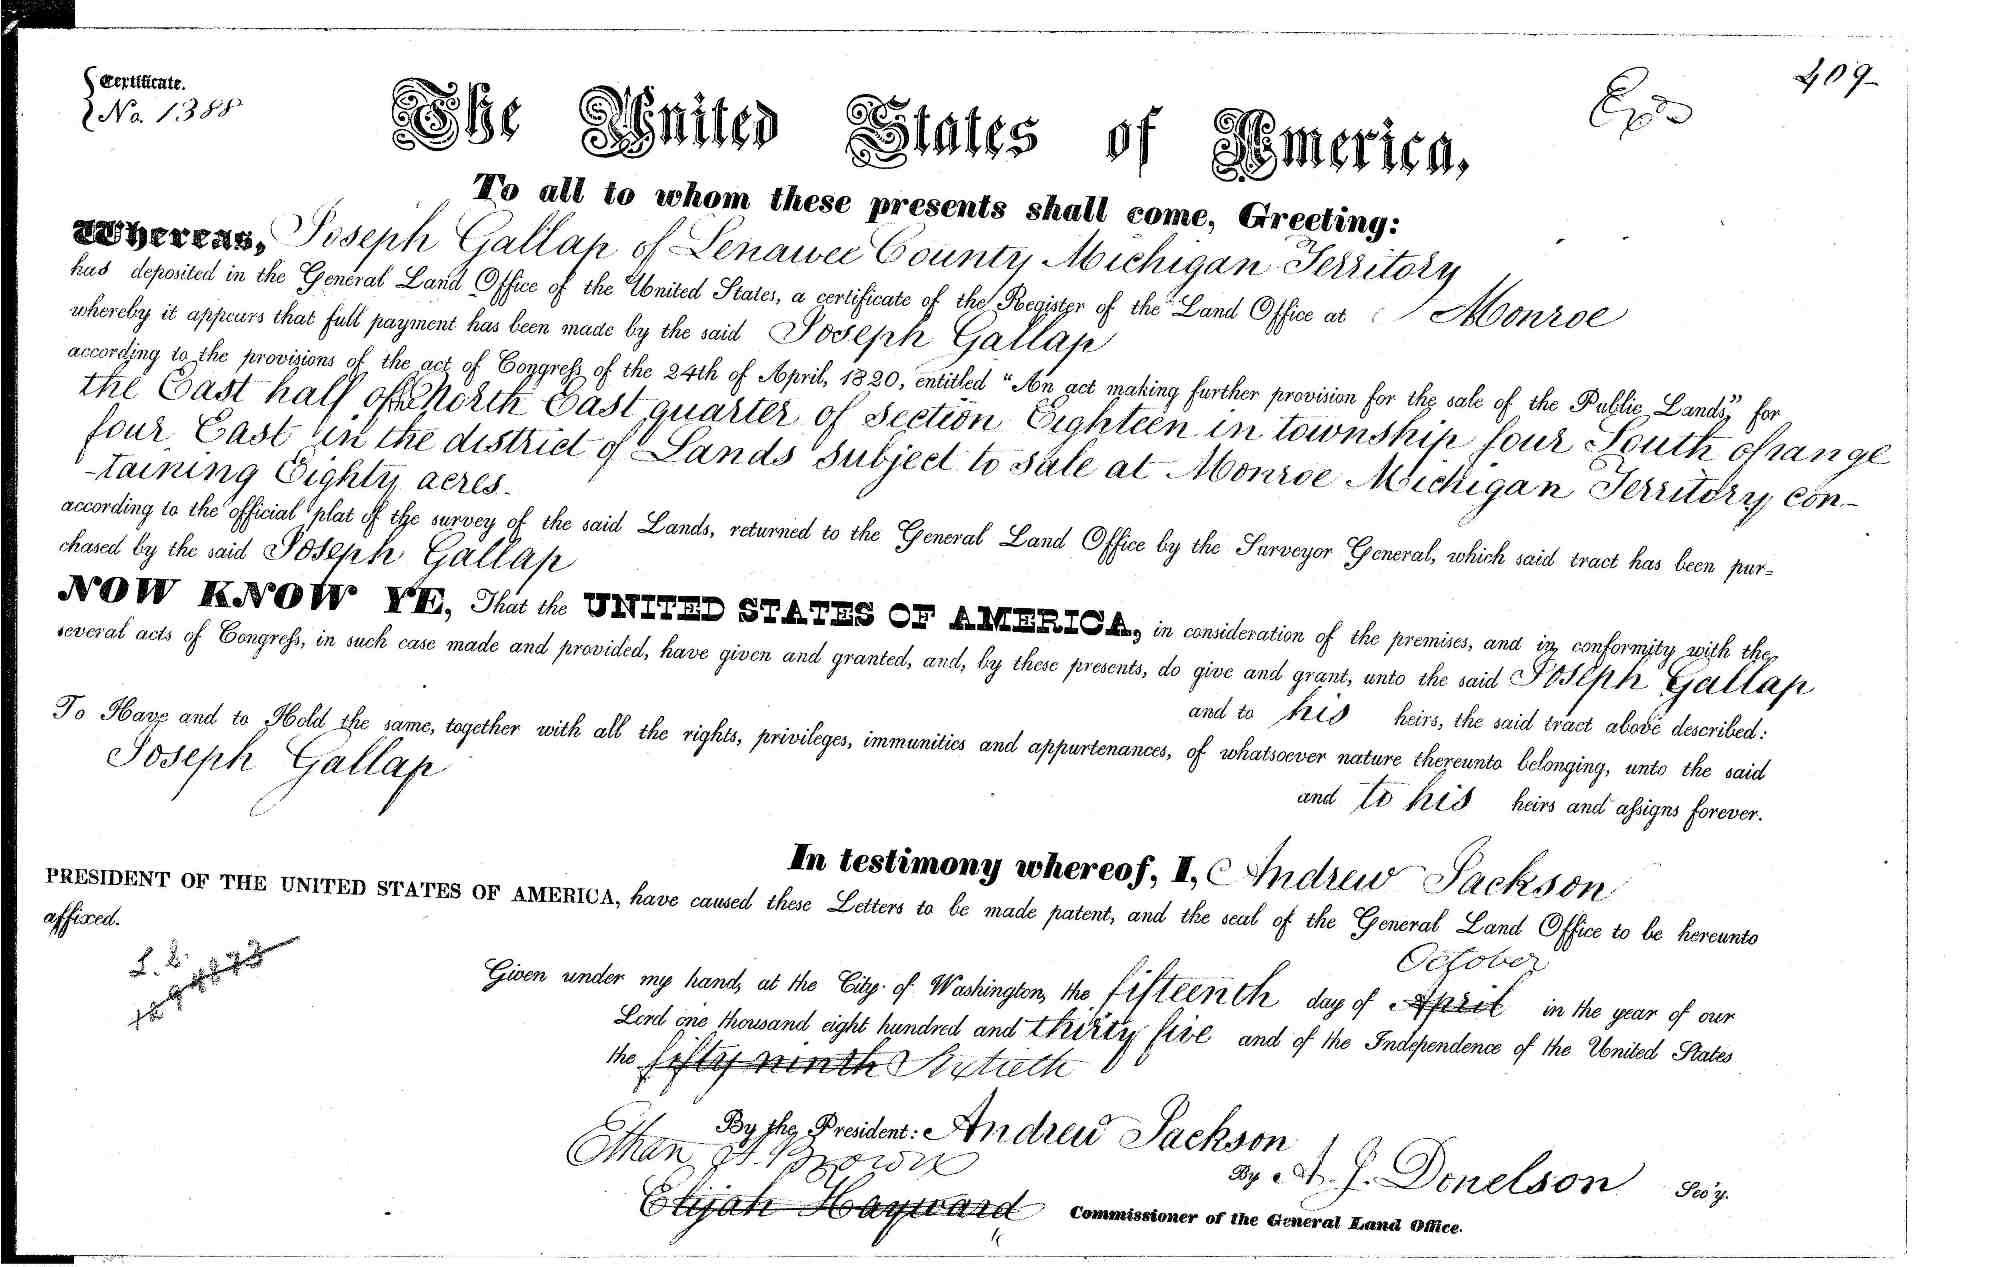 Certificate.
No. 1388
409
The United States of America,
To all to whom these presents shall come, Greeting:
Whereas, Joseph Gallap of Lenawee County Michigan Territory
has deposited in the General Land Office of the United States, a certificate of the Register of the Land Office at Monroe
whereby it appears that full payment has been made by the said Joseph Gallap
according to the provisions of the act of Congress of the 24th of April, 1820, entitled "An act making further provision for the sale of the Public Lands," for
the East half of the North East quarter of section Eighteen in township four South of range
four East in the district of Lands subject to sale at Monroe Michigan Territory con-
-taining Eighty acres.
according to the official plat of the survey of the said Lands, returned to the General Land Office by the Surveyor General, which said tract has been pur=
chased by the said Joseph Gallap
NOW KNOW YE, That the UNITED STATES OF AMERICA, in consideration of the premises, and in conformity with the
several acts of Congress, in such case made and provided, have given and granted, and, by these presents, do give and grant, unto the said Joseph Gallap
and to his heirs, the said tract above described:
To Have and to Hold the same, together with all the rights, privileges, immunities and appurtenances, of whatsoever nature thereunto belonging, unto the said
Joseph Gallap
and to his heirs and assigns forever.
In testimony whereof, I, Andrew Jackson
PRESIDENT OF THE UNITED STATES OF AMERICA, have caused these Letters to be made patent, and the seal of the General Land Office to be hereunto
affixed.
October
Given under my hand, at the City of Washington, the fifteenth day of April in the year of our
Lord one thousand eight hundred and thirty five and of the Independence of the United States
the fifty ninth Sixtieth
By the President: Andrew Jackson
Ethan A. Brown
By A. J. Donelson Sec'y.
Elijah Hayward Commissioner of the General Land Office.